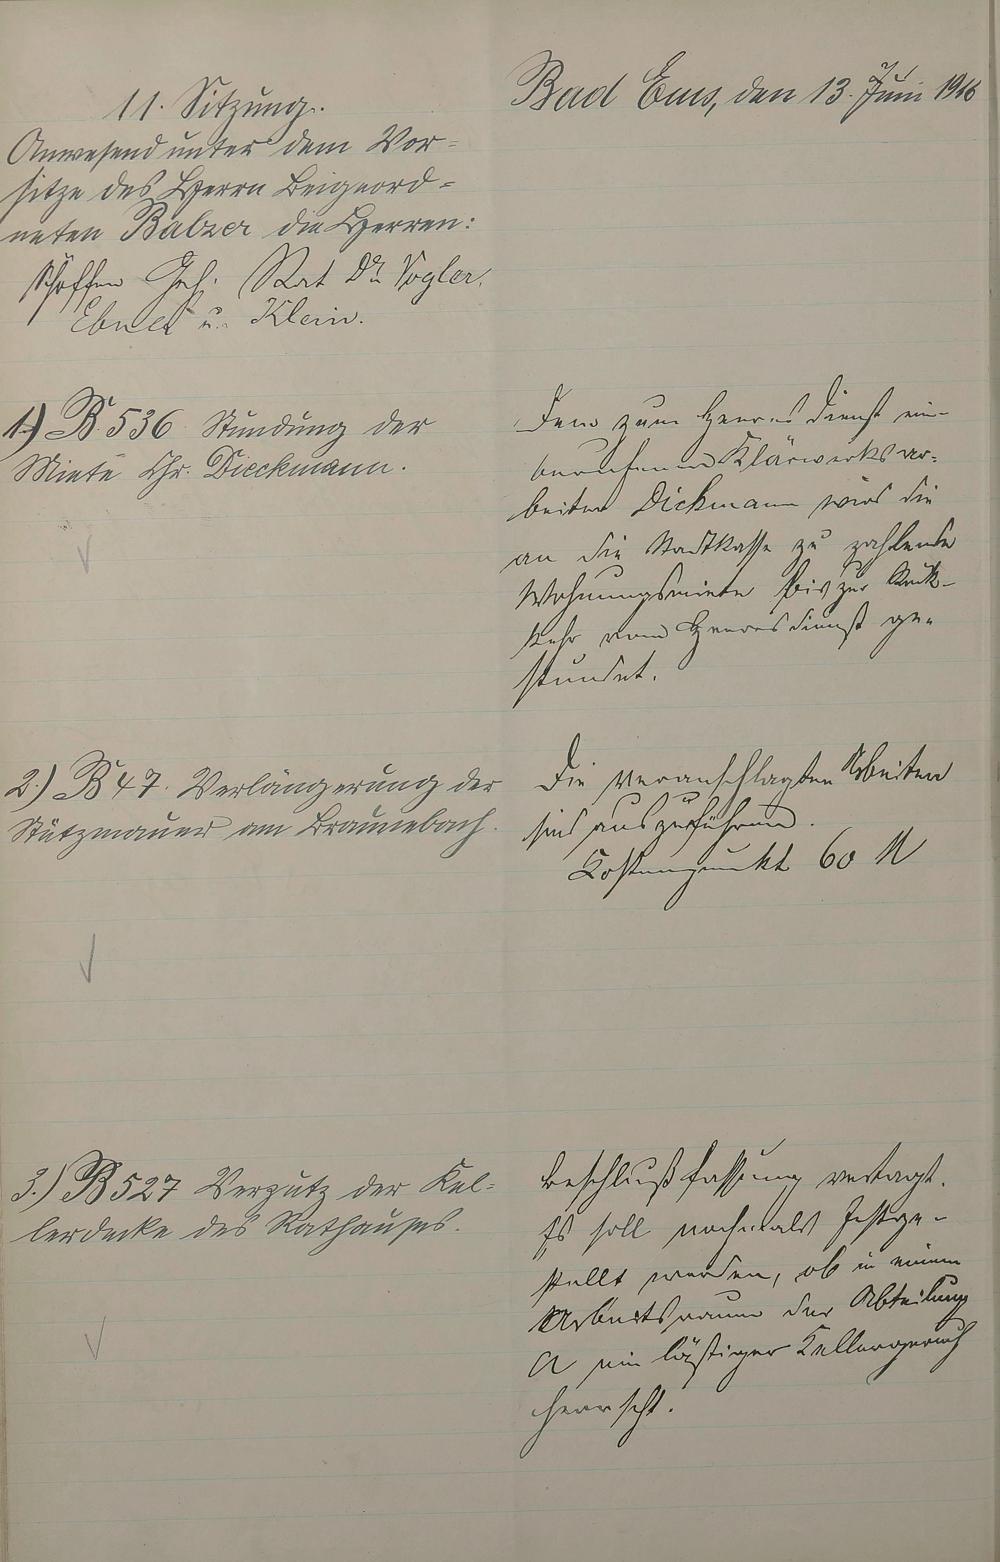 Bad Ems, den 13. Juni 1916
11. Sitzung.
Anwesend unter dem Vor-
sitze des Herrn Beigeord-
neten Balzer die Herren:
Schöffen Geh. Rat Dr. Vogler,
Ebner u. Klein.
1.) B. 536 Stundung der
Miete Chr. Dieckmann.
Dem zum Heeresdienst ein-
berufenen Klärwerksar-
beiter Dickmann wird die
an die Stadtkasse zu zahlende
Wohnungsmiete bis zur Rück-
kehr vom Heeresdienst ge-
stundet.
2.) B 47. Verlängerung der
Stützmauer am Braunebach.
Die veranschlagten Arbeiten
sind auszuführen.
Kostenpunkt 60 M
3.) B 527 Verputz der Kel-
lerdecke des Rathauses.
Beschlußfassung vertagt.
Es soll nochmals festge-
stellt werden, ob in einem
Arbeitsraum der Abteilung
A ein lästiger Kellergeruch
herrscht.